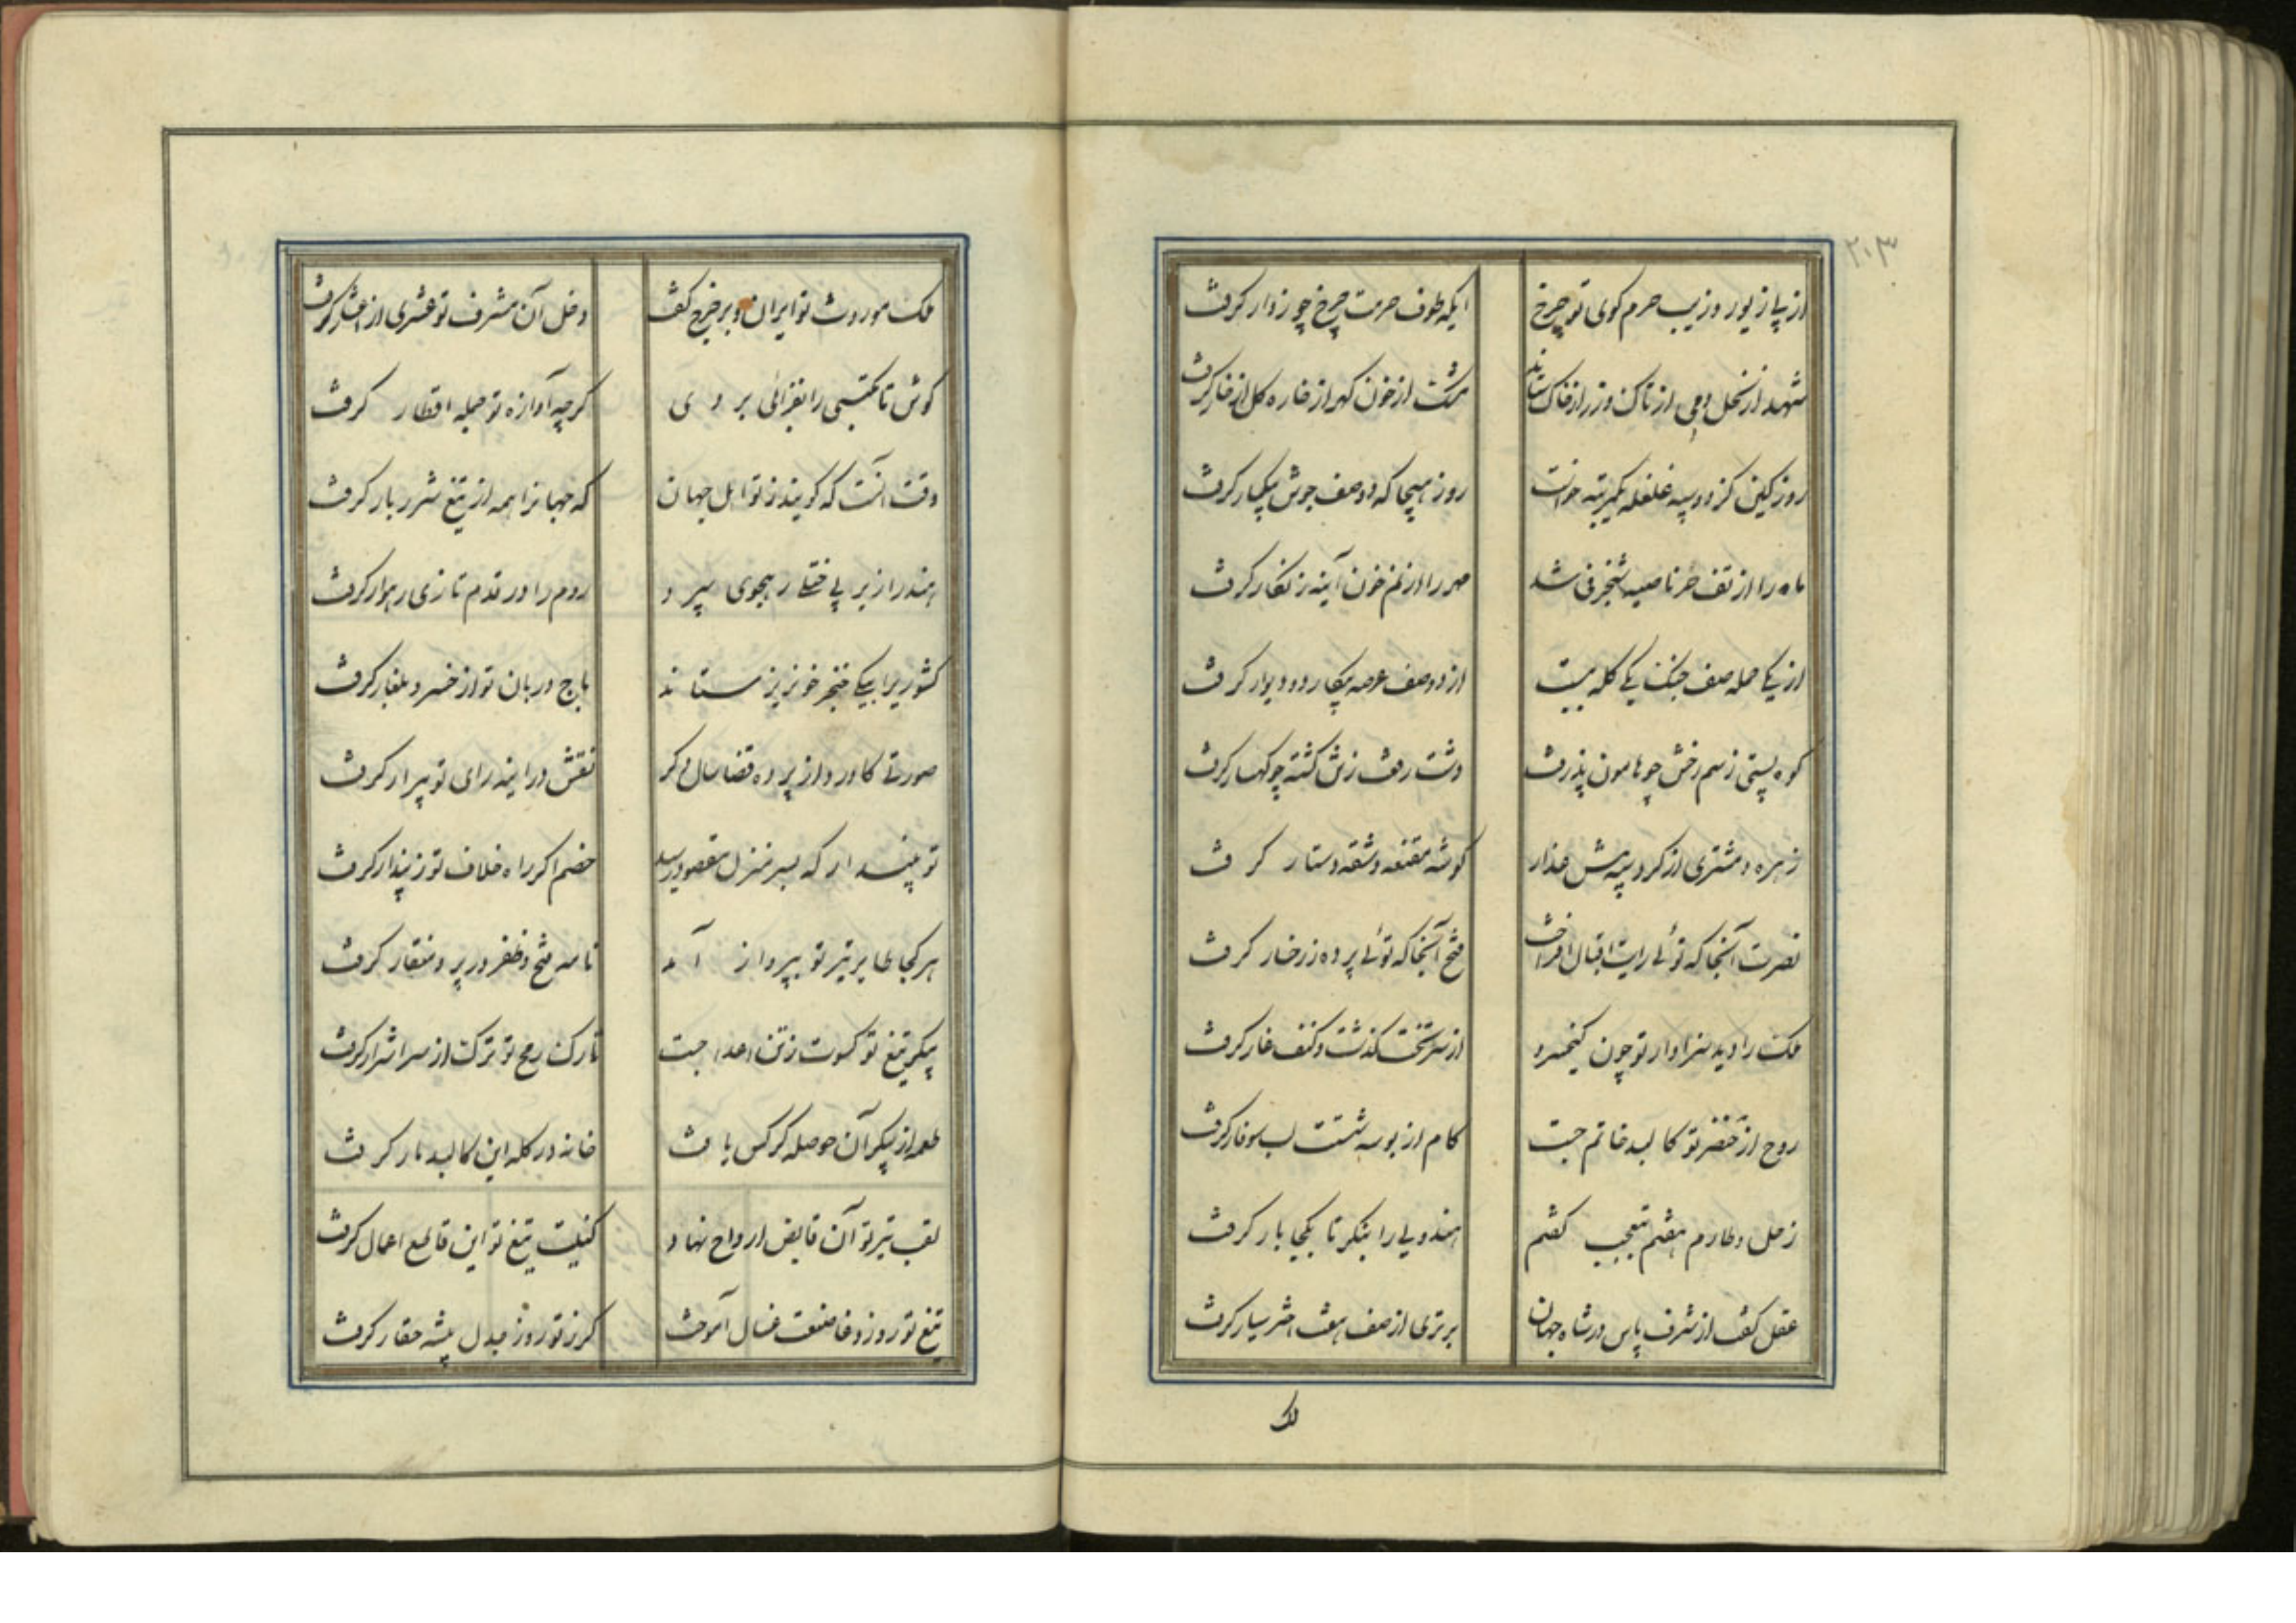 ۲۰۳
از پا زیور و زیب حرم کوی تو چرخ ایکه طوف حرمت چرخ چو زوار کرفت
شهد از نحل و می از تاک و زر از خاک ستاند مشت از خون کهر از خاره کل از خار کرفت
روز کین کز دو سپه غلغله یکمرتبه خواست روز هیجا که دو صف جوش پیکار کرفت
ماه را از تف خر ناصیه شنجرفی شد مهر را از نم خون آینه زنکار کرفت
از یکی حمله صف جنک یکی کله بیت از دو صف عرصه پیکار دو دیوار کرفت
کوه پستی ز سم رخش چو هامون پذرفت دشت رفعت زتن کشته چو کهسار کرفت
زهره و مشتری از کرد سپه پیش عذار کوشه مقنعه و شقه دستار کرفت
نصرت آنجا که توئی رایت اقبال افراخت فتح آنجا که توئی پرده ز رخسار کرفت
ملک را دید سزاوار تو چون کیخسرو از سر تخت کذشت و کنف غار کرفت
روح از خنصر تو کالبد خاتم جست کام از بوسه شستت لب سوفار کرفت
زحل و طارم هفتم بتعجب کفتم هندویی را بنکر تا بکجا بار کرفت
عقل کفت از شرف پاس در شاه جهان برتری از صف هفت اختر سیار کرفت
ملک
ملک موروث تو ایران و بر خرج کفت دخل آن مشرف تو عشری از اعشار کرفت
کوش تا مکتسبی را بفزائی بر وی کرچه آوازه تو جمله اقطار کرفت
وقت آنست که کویند ز تو اهل جهان که جهانرا همه از تیغ شرربار کرفت
هند را زیر پی ختلی رهجوی سپرد روم را در قدم تازی رهوار کرفت
کشوریرا بیکی خنجر خونریز ستاند باج دربان تو از خسرو بلغار کرفت
صورتی کاورد از پرده قضا سال دکر نقش در اینه رای تو پیرار کرفت
تو مپندار که بسر منزل مقصود رسد خصم اکر راه خلاف تو ز پندار کرفت
هر کجا طایر تیر تو بپرواز آمد نامه فتح و ظفر در پر و منقار کرفت
پیکر تیغ تو کسوت ز تن اعدا جست تارک رمح تو ترک از سر اشرار کرفت
طعمه از پیکر آن حوصله کرکس یافت خانه در کله این کالبد مار کرفت
لقب تیر تو آن قابض ارواح نهاد کنیت تیغ تو این قاطع اعمال کرفت
تیغ تو روز وغا صنعت غسال آموخت کرز تو روز جدل پیشه حفار کرفت